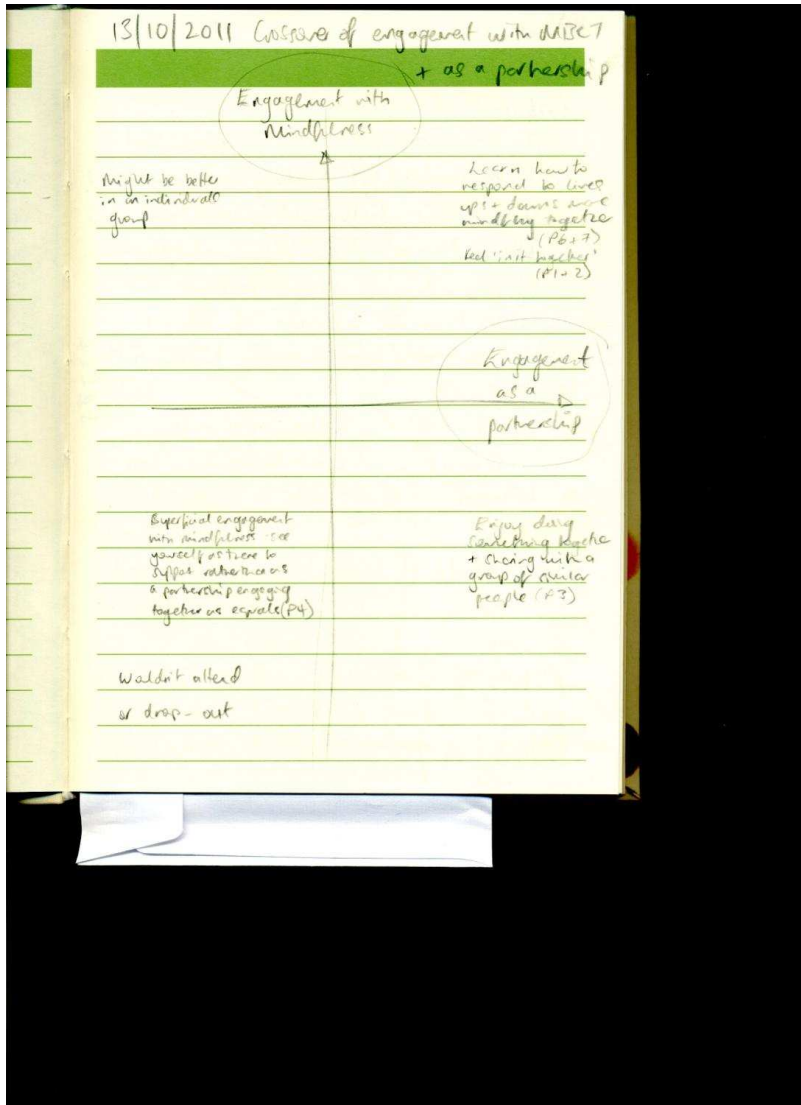 13/10/2011 Crossover of engagement with MBCT
+ as a partnership
Engagement with
Mindfulness
Might be better
in an individuals
group
Learn how to
respond to lives
ups + downs more
mindfully together
(P6+7)
Feel 'in it together'
(P1+2)
Engagement
as a
partnership
Superficial engagement
with mindfulness - see
yourself as there to
support rather than as
a partnership engaging
together as equals (P4)
Enjoy doing
something together
+ sharing with a
group of similar
people (P3)
Wouldn't attend
or drop-out